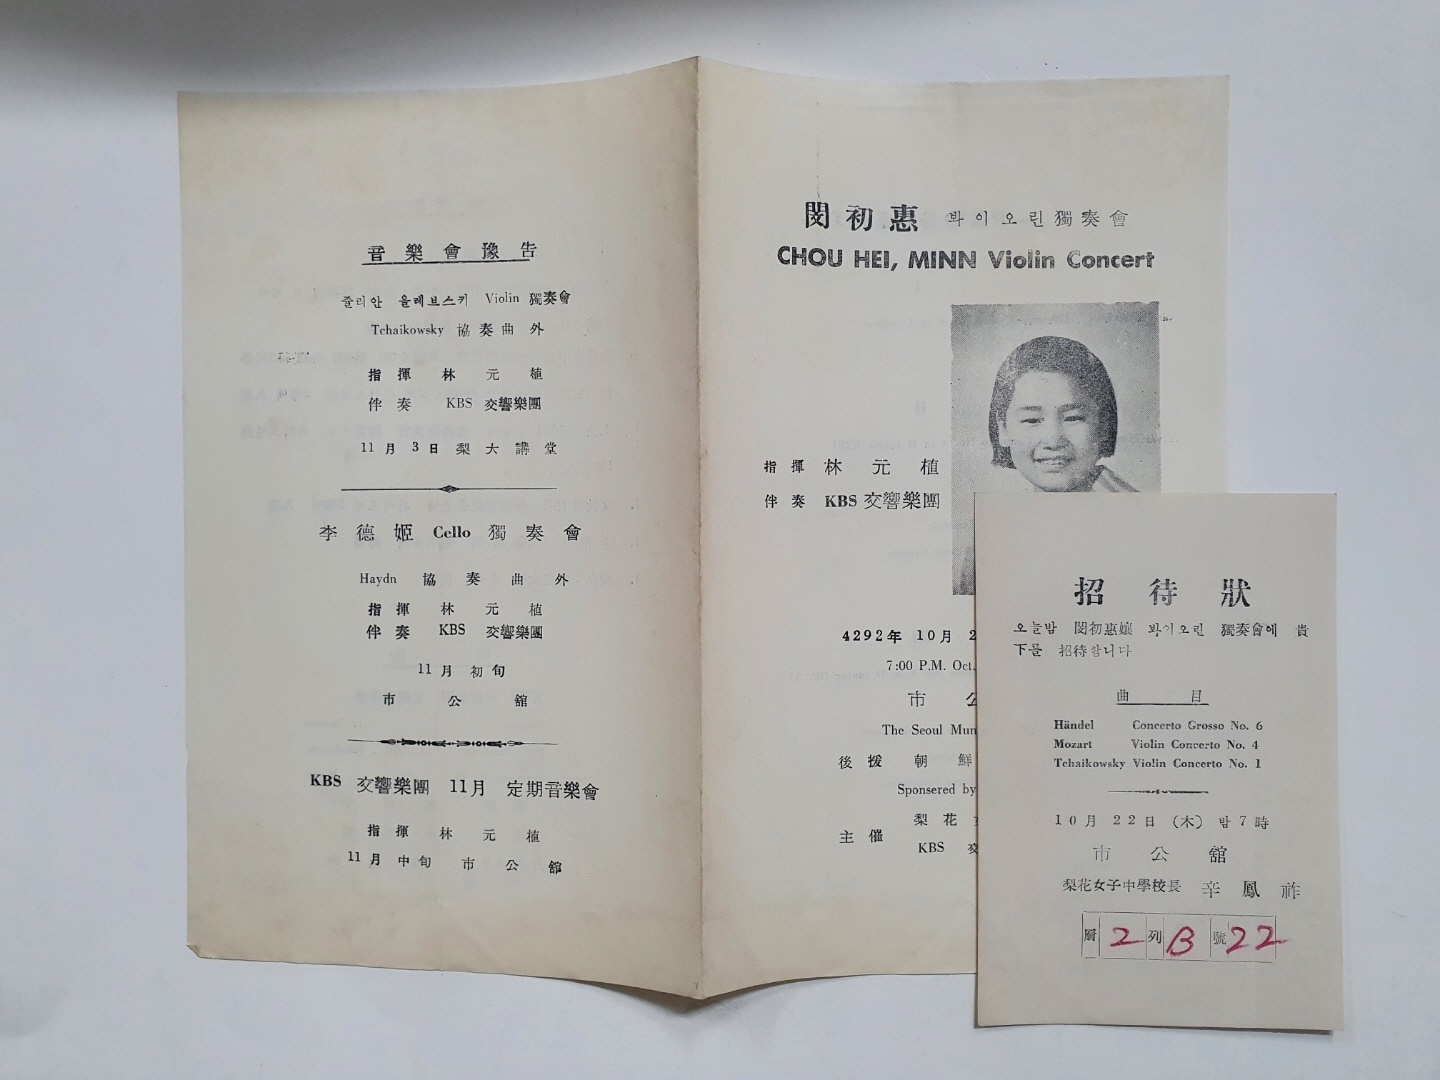 音樂會豫告
쥴리안 올레브스키 Violin 獨奏會
Tchaikowsky 協奏曲外
指揮 林元植
伴奏 KBS 交響樂團
11月 3日 梨大講堂
李德姬 Cello 獨奏會
Haydn 協奏曲外
指揮 林元植
伴奏 KBS 交響樂團
11月 初旬
市公舘
KBS 交響樂團 11月 定期音樂會
指揮 林元植
11月中旬 市公舘
閔初惠 봐이오린獨奏會
CHOU HEI, MINN Violin Concert
指揮 林元植
伴奏 KBS 交響樂團
4292年 10月 2
7:00 P.M. Oct.
市公
The Seoul Mun
後援 朝鮮
Sponsered by
主催 梨花
KBS 交
招待狀
오늘밤 閔初惠孃 봐이오린 獨奏會에 貴
下를 招待합니다
曲目
Händel Concerto Grosso No. 6
Mozart Violin Concerto No. 4
Tchaikowsky Violin Concerto No. 1
10月 22日 (木) 밤 7時
市公舘
梨花女子中學校長 辛鳳祚
層 2 列 B 號 22